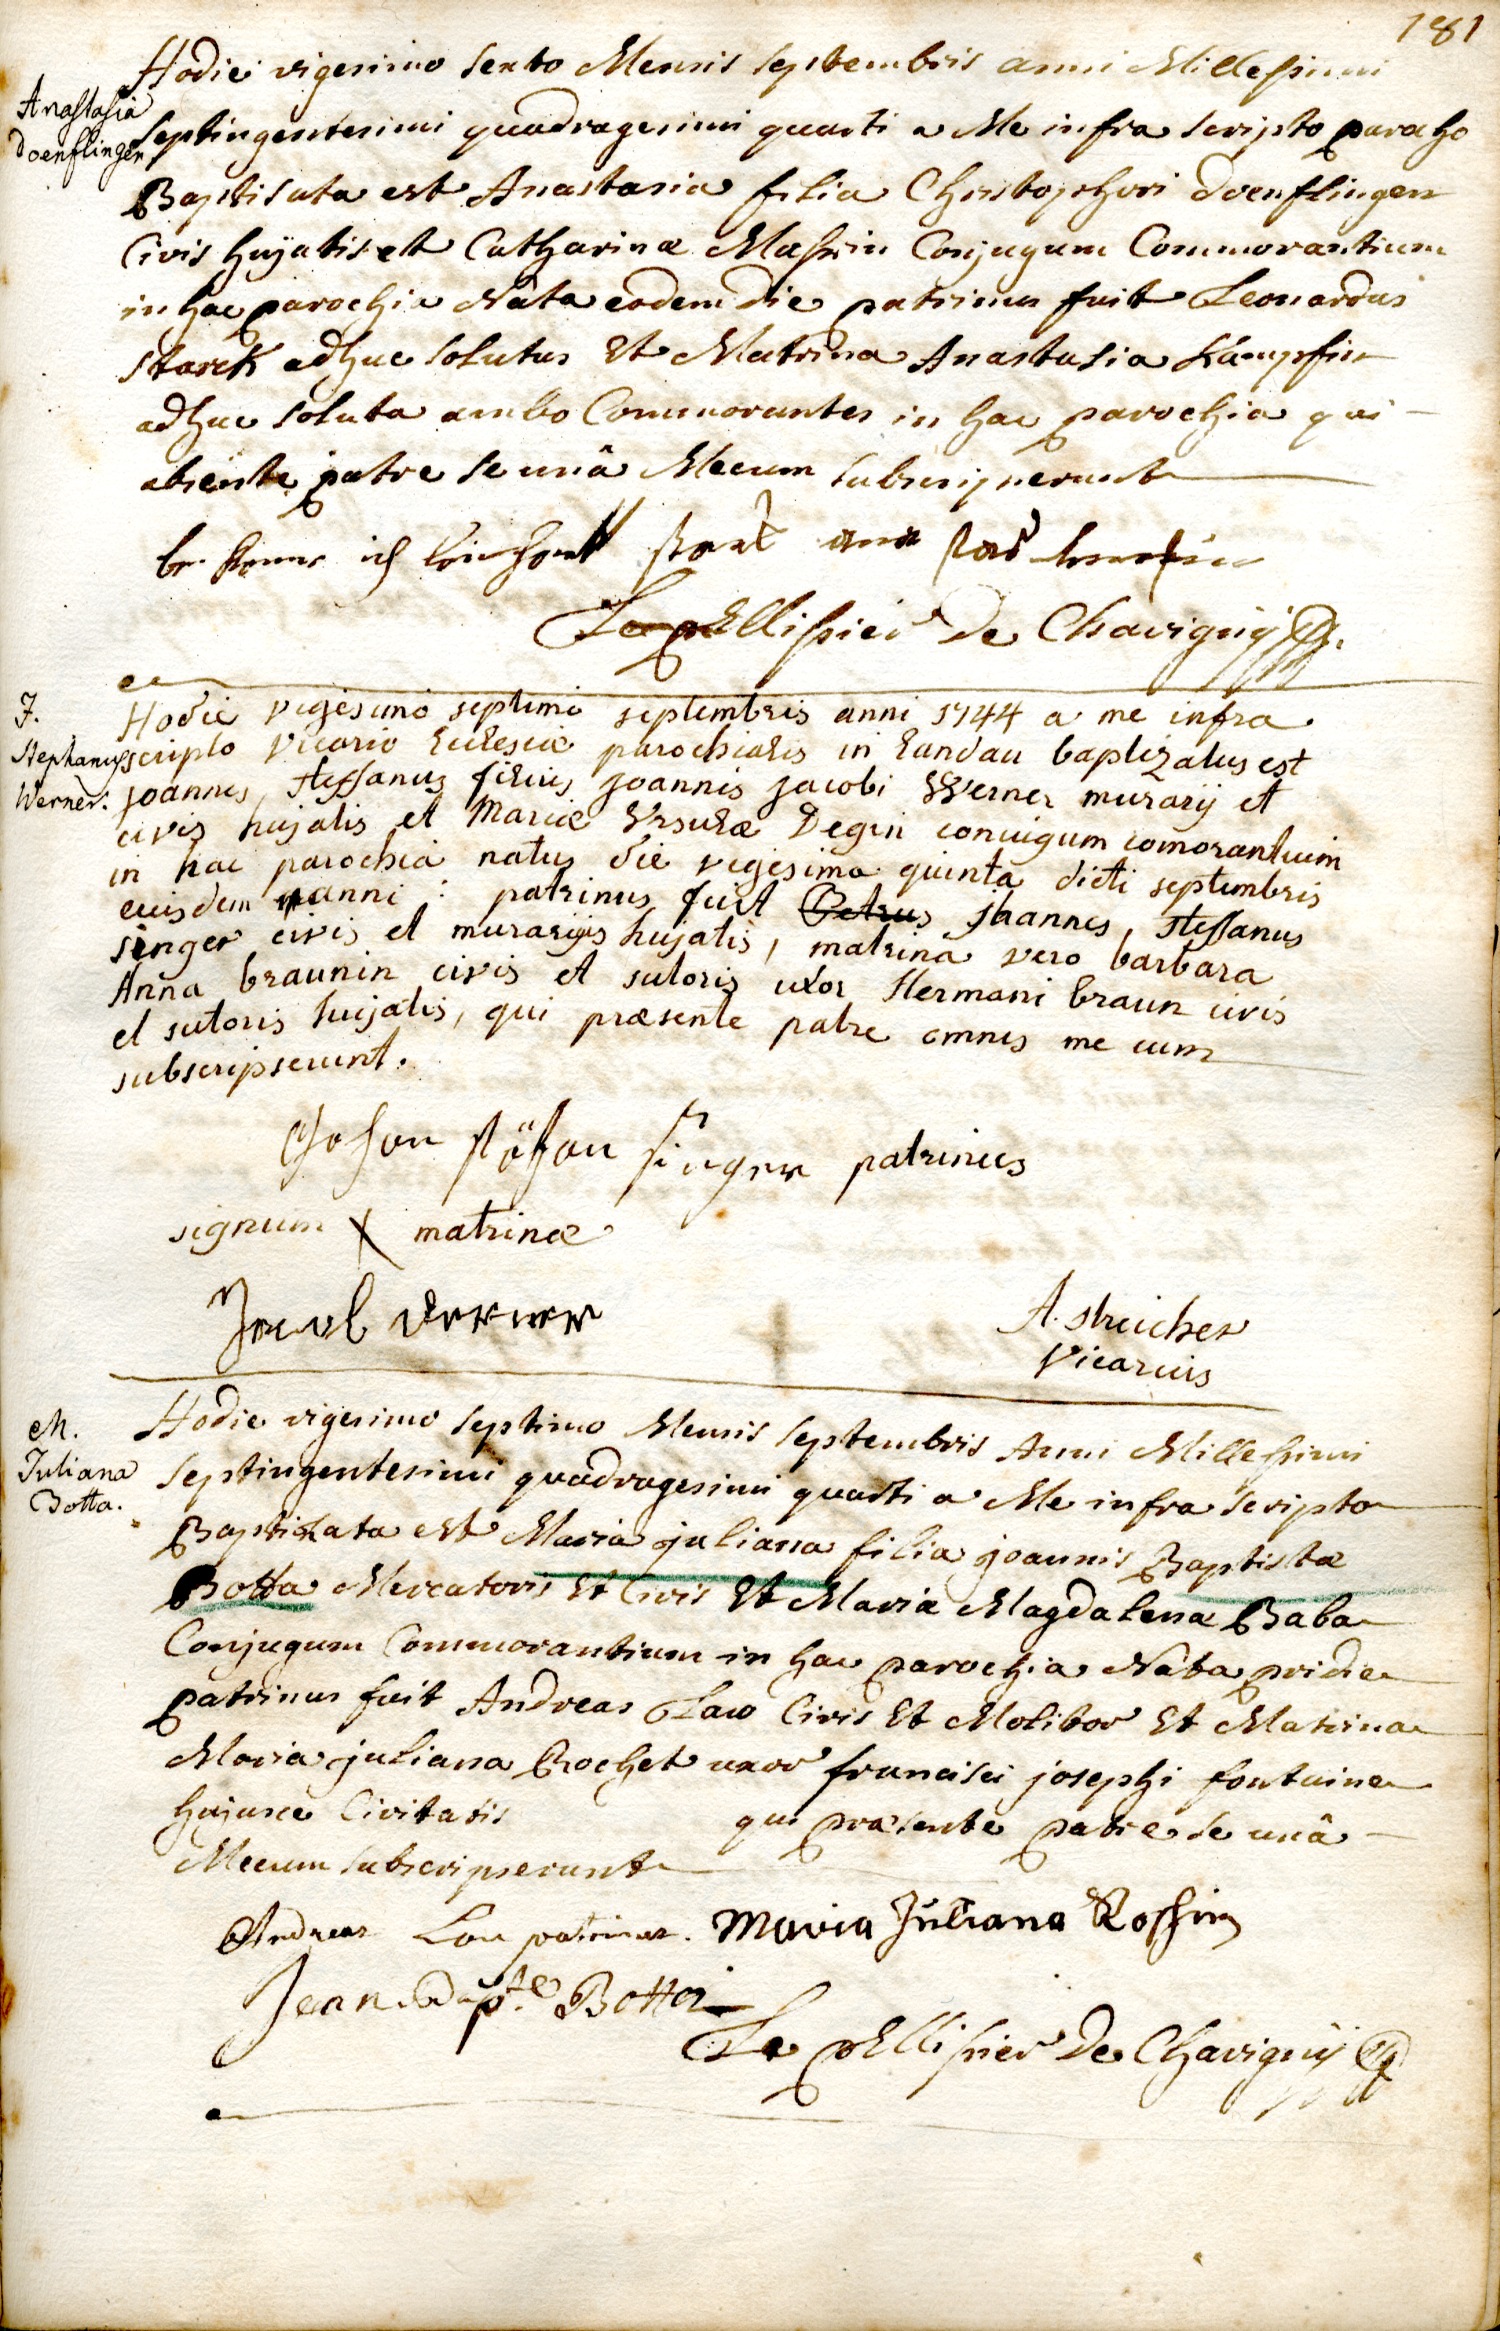 181
Anastasia
Doenflingen
Hodie vigesimo sexto Mensis septembris anni Millesimi
septingentesimi quadragesimi quarti a Me infra scripto parocho
Baptisata est Anastasia filia Christophori doenflingen
Civis hujatis et Catharinæ Massin Conjugum Commorantium
in hac parochia Nata eodem die patrinus fuit Leonardus
starck adhuc solutus Et Matrina Anastasia Kämpfin
adhuc soluta ambo Commorantes in hac parochia qui
absente patre se unâ Mecum subscripserunt
ich
Le pEllissier De Chavigny
J.
Stephanus
Werner.
Hodie vigesimo septimo septembris anni 1744 a me infra
scripto vicario Ecclesiæ parochialis in Landau baptizatus est
joannes, steffanus filius joannis jacobi Werner murarij et
civis hujatis et Mariæ Ursulæ Degin coniugum comorantium
in hac parochia natus die vigesima quinta dicti septembris
eiusdem anni : patrinus fuit Petrus jhannes, steffanus
singer civis et murarijs hujatis, matrina vero barbara
Anna braunin civis et sutoris uxor Hermani braun civis
et sutoris hujatis, qui præsente patre omnes me cum
subscripserunt.
Johan stöfan singer patrinus
signum X matrinæ
Jacob Werner
A. streicher
Vicarius
M.
Juliana
Botta.
Hodie vigesimo septimo Mensis septembris Anni Millesimi
septingentesimi quadragesimi quarti a Me infra scripto
Baptizata est Maria juliana filia joannis Baptistæ
Botta Mercatoris Et Civis Et Mariæ Magdalenæ Baba
Conjugum Commorantium in hac parochia Nata pridie
patrinus fuit Andreas Lau Civis Et Molitor Et Matrina
Maria juliana Rochet uxor francisci josephi fontaine
hujusce Civitatis qui præsente patre se unâ
Mecum subscripserunt
Andreas Lau patrinus. Maria Juliana Rossin
Jean Bapte Botta
Le pEllissier De Chavigny